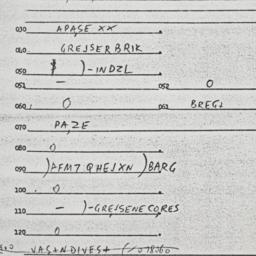 030 APASE XX
040 GREJSERBRIK
050 )-INDZL
051 — 052 0
060 0 061 BREG+
070 PAZE
080 0
090 )AFM7QHEJXN )BARG
100 0
110 — )-GREJSENECORES
120 0
VAS+NDIVES+